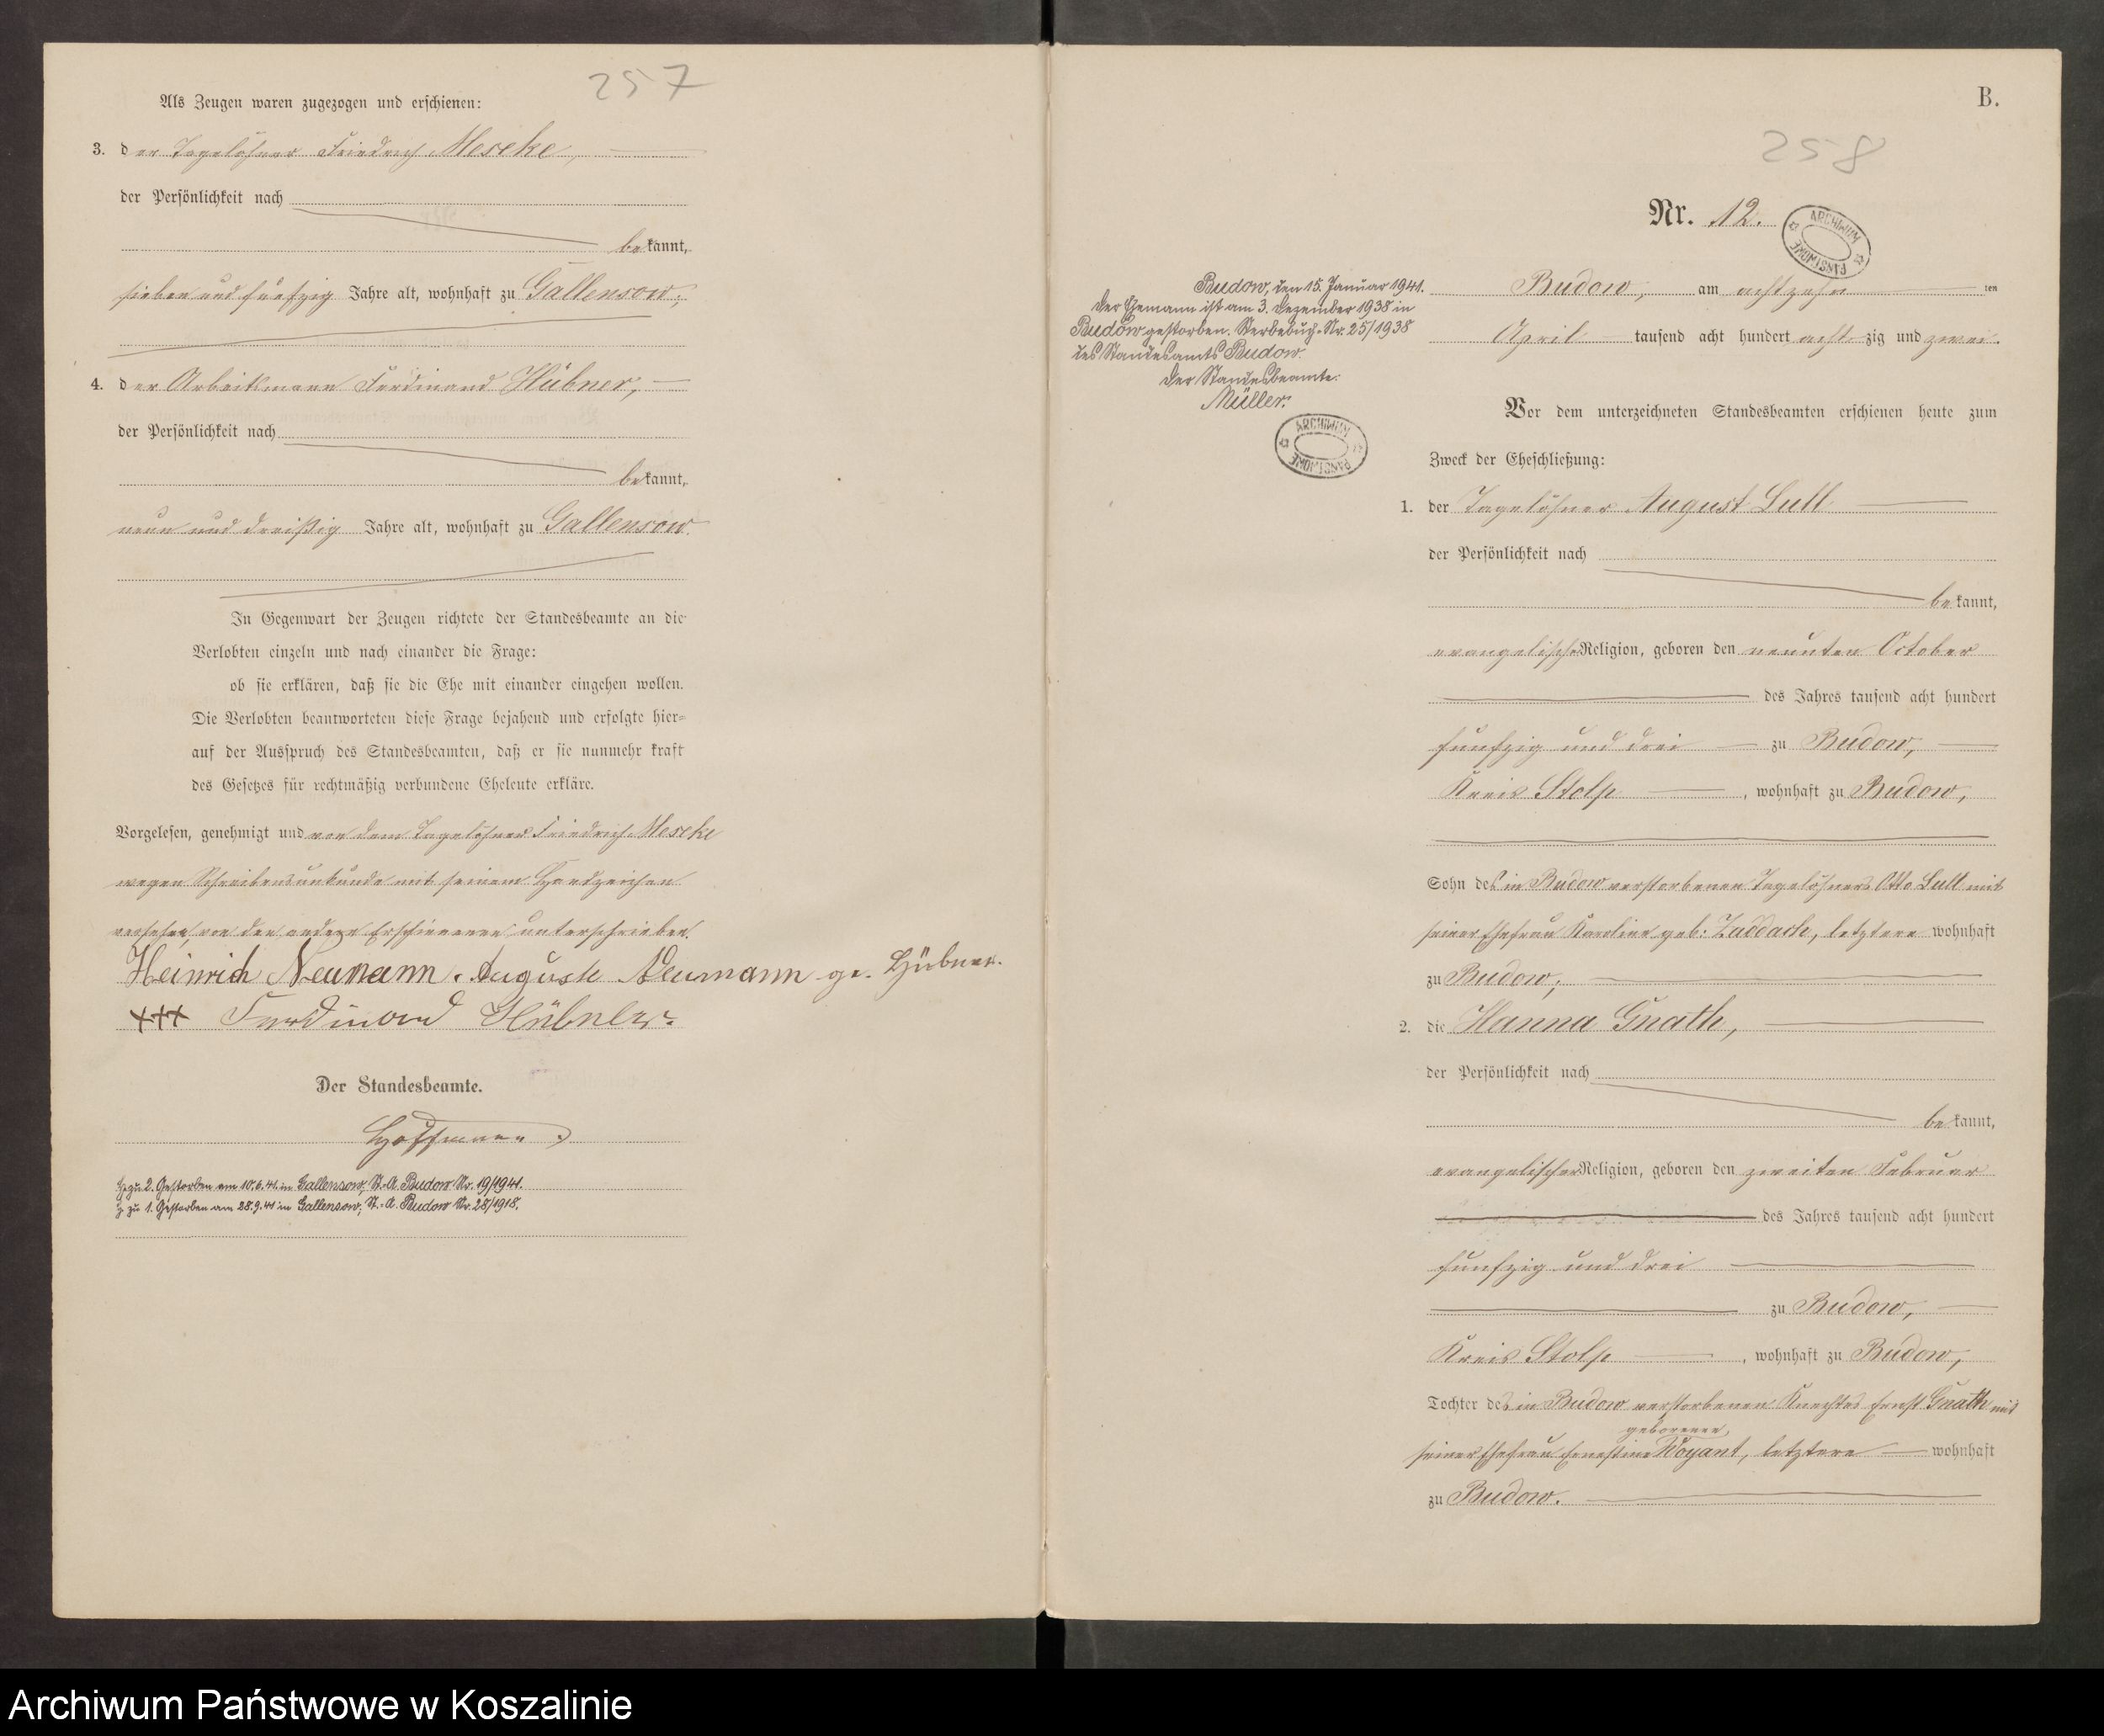 257
Als Zeugen waren zugezogen und erschienen:
3. der Tagelöhner Friedrich Meseke,
der Persönlichkeit nach
bekannt,
sieben und fünfzig Jahre alt, wohnhaft zu Gallensow;
4. der Arbeitsmann Ferdinand Hübner,
der Persönlichkeit nach
bekannt,
neun und dreißig Jahre alt, wohnhaft zu Gallensow.
In Gegenwart der Zeugen richtete der Standesbeamte an die
Verlobten einzeln und nach einander die Frage:
ob sie erklären, daß sie die Ehe mit einander eingehen wollen.
Die Verlobten beantworteten diese Frage bejahend und erfolgte hier=
auf der Ausspruch des Standesbeamten, daß er sie nunmehr kraft
des Gesetzes für rechtmäßig verbundene Eheleute erkläre.
Vorgelesen, genehmigt und von dem Tagelöhner Friedrich Meseke
wegen Schreibensunkunde mit seinem Handzeichen
versehen, von den andern Erschienenen unterschrieben.
Heinrich Neumann. Auguste Neumann ge. Hübner.
+++ Ferdinand Hübner.
Der Standesbeamte.
Hoffmann
H zu 2. Gestorben am 10.6.41. in Gallensow, St.-A. Budow Nr. 19/1941.
zu 1. Gestorben am 28.9. in Gallensow, St.-A. Budow Nr. 28/1918.
B.
258
Nr. 12.
ARCHIWUM PAŃSTWOWE
Budow, den 15. Januar 1941.
Der Ehemann ist am 3. Dezember 1938 in
Budow gestorben. Sterbebuch-Nr. 25/1938
des Standesamts Budow.
Der Standesbeamte:
Müller.
ARCHIWUM PAŃSTWOWE
Budow, am achtzehn ten
April tausend acht hundert acht zig und zwei.
Vor dem unterzeichneten Standesbeamten erschienen heute zum
Zweck der Eheschließung:
1. der Tagelöhner August Lull
der Persönlichkeit nach
bekannt,
evangelischer Religion, geboren den neunten October
des Jahres tausend acht hundert
funfzig und drei zu Budow,
Kreis Stolp, wohnhaft zu Budow,
Sohn des in Budow verstorbenen Tagelöhners Otto Lull mit
seiner Ehefrau Karoline geb. Zaddach, letztere wohnhaft
zu Budow;
2. die Hanna Gnath,
der Persönlichkeit nach
bekannt,
evangelischer Religion, geboren den zweiten Februar
des Jahres tausend acht hundert
funfzig und drei
zu Budow,
Kreis Stolp, wohnhaft zu Budow,
Tochter des in Budow verstorbenen Knechtes Ernst Gnath mit
geborenen
seiner Ehefrau Ernestine Woyant, letztere wohnhaft
zu Budow.
Archiwum Państwowe w Koszalinie